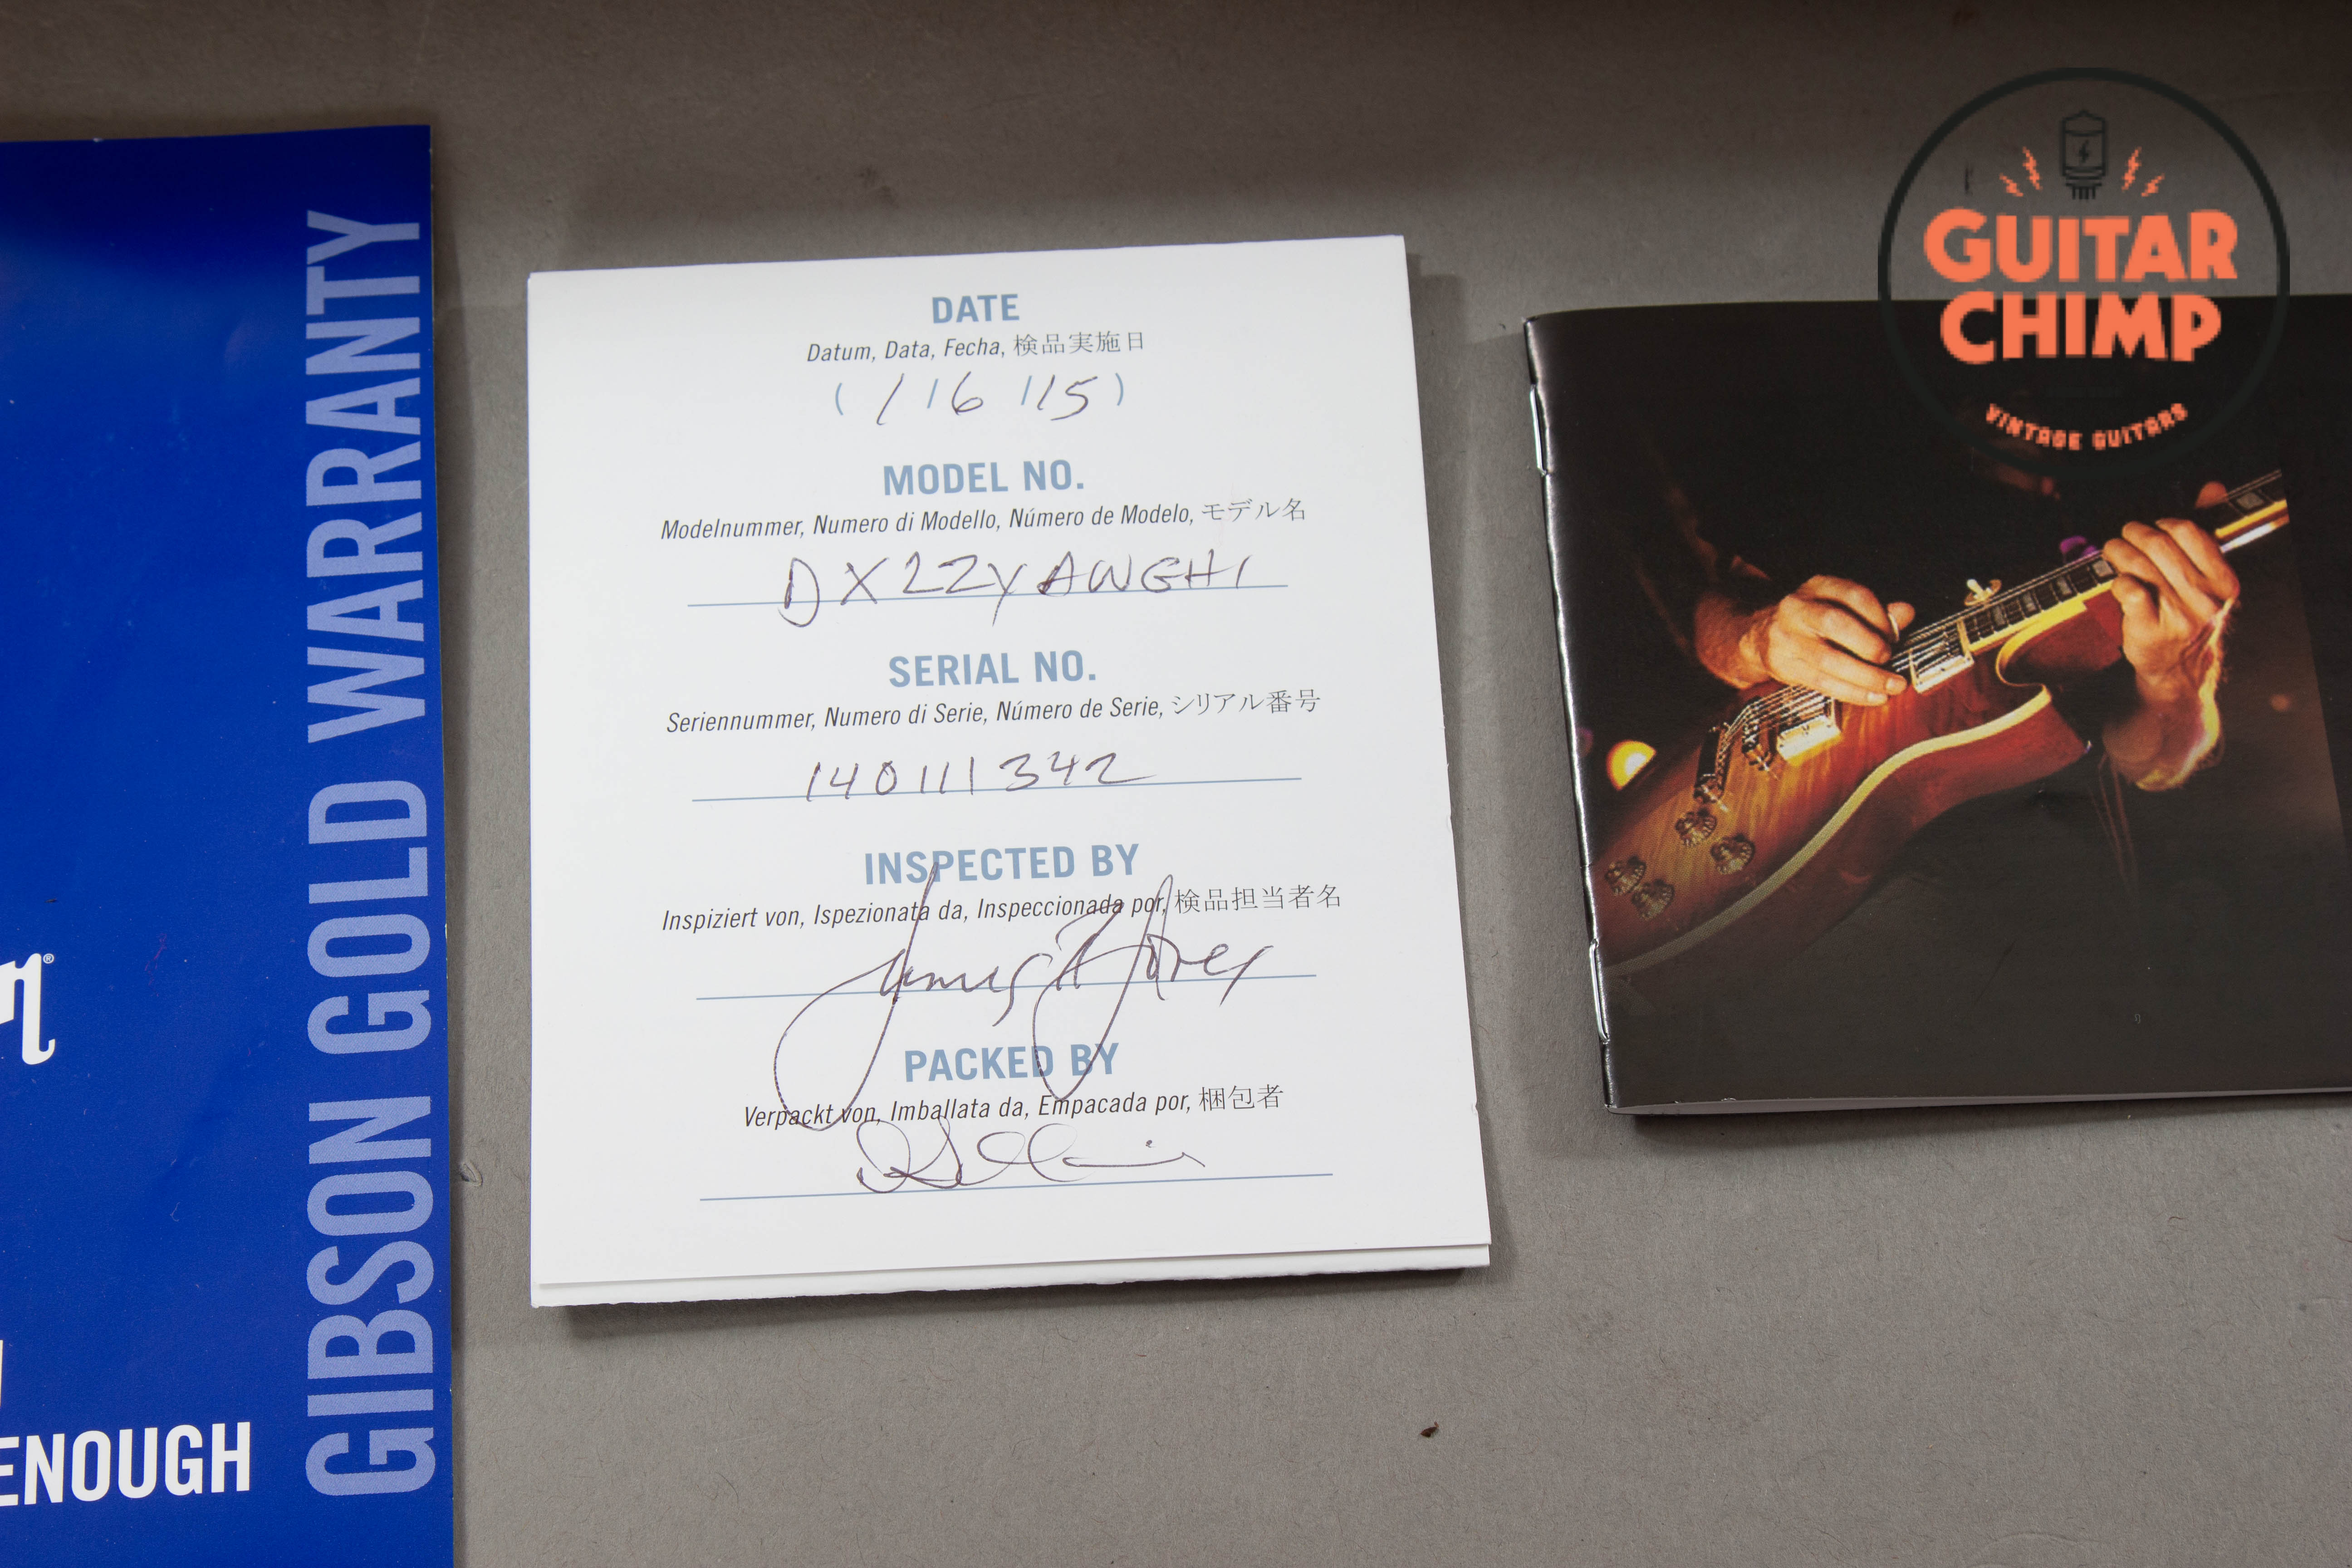 GUITAR
CHIMP
VINTAGE GUITARS
GIBSON GOLD WARRANTY
ENOUGH
DATE
Datum, Data, Fecha, 検品実施日
( 1 / 6 / 15 )
MODEL NO.
Modelnummer, Numero di Modello, Número de Modelo, モデル名
DXZZYAWGH1
SERIAL NO.
Seriennummer, Numero di Serie, Número de Serie, シリアル番号
140111342
INSPECTED BY
Inspiziert von, Ispezionata da, Inspeccionada por, 検品担当者名
James
PACKED BY
Verpackt von, Imballata da, Empacada por, 梱包者